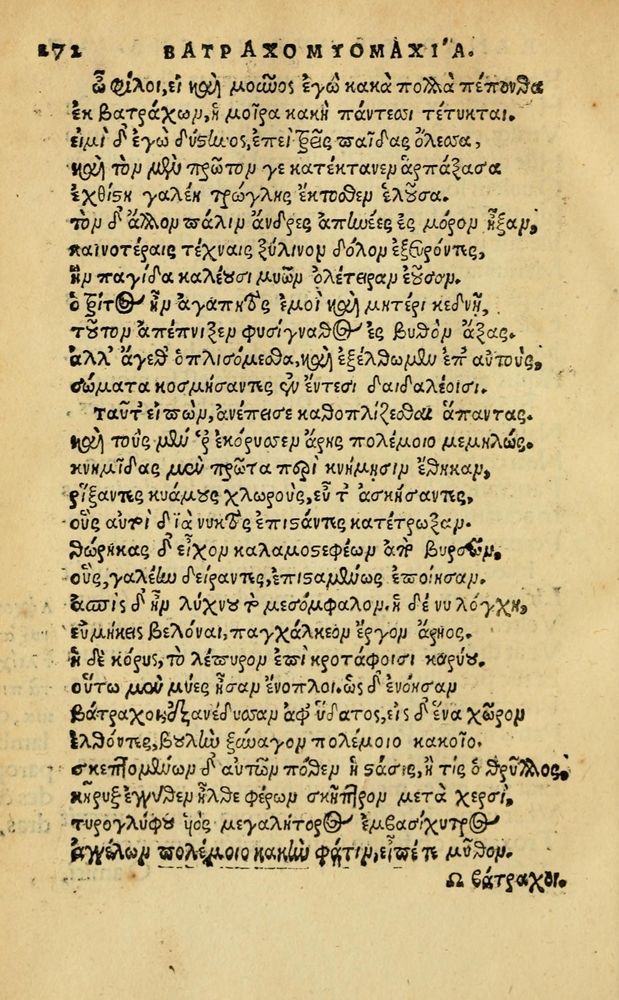 272 ΒΑΤΡΑΧΟΜΥΟΜΑΧΙ´Α.
ὦ φίλοι, εἰ καὶ μοῦνος ἐγὼ κακὰ πολλὰ πέπονθα
ἐκ βατράχων, ἡ μοῖρα κακὴ πάντεσι τέτυκται.
εἰμὶ δ' ἐγὼ δύστηνος, ἐπεὶ τρεῖς παῖδας ὄλεσα,
καὶ τὸν μὲν πρῶτον γε κατέκτανεν ἁρπάξασα
ἐχθίστη γαλέη τρώγλης ἔκτοθεν ἑλοῦσα.
τὸν δ' ἄλλον πάλιν ἄνδρες ἀπηνέες ἐς μόρον ἦξαν,
καινοτέραις τέχναις ξύλινον δόλον ἐξευρόντες,
ἣν παγίδα καλέουσι μυῶν ὀλέτειραν ἐοῦσαν.
ὁ τρίτος ἦν ἀγαπητὸς ἐμοὶ καὶ μητέρι κεδνῇ,
τοῦτον ἀπέπνιξεν φυσίγναθος ἐς βυθὸν ἄξας.
ἀλλ' ἄγεθ' ὁπλισόμεσθα, καὶ ἐξέλθωμεν ἐπ' αὐτούς,
σώματα κοσμήσαντες ἐν ἔντεσι δαιδαλέοισι.
ταῦτ' εἰπὼν, ἀνέπεισε καθοπλίζεσθαι ἅπαντας.
καὶ τοὺς μέν ῥ' ἐκόρυσσεν ἄρης πολέμοιο μεμηλώς.
κνημῖδας μὲν πρῶτα περὶ κνήμησιν ἔθηκαν,
ῥήξαντες κυάμους χλωροὺς, εὖ τ' ἀσκήσαντες,
οὓς αὐτοὶ διὰ νυκτὸς ἐπιστάντες κατέτρωξαν.
θώρηκας δ' εἶχον καλαμοστεφέων ἀπὸ βυρσῶν,
οὓς, γαλέην δείραντες, ἐπισταμένως ἐποίησαν.
ἀσπὶς δ' ἦν λύχνου τὸ μεσόμφαλον. ἡ δέ νυ λόγχη,
εὐμήκεις βελόναι, παγχάλκεον ἔργον ἄρηος.
ἡ δὲ κόρυς, τὸ λέπυρον ἐπὶ κροτάφοισι καρύου.
οὕτω μὲν μύες ἦσαν ἔνοπλοι. ὡς δ' ἐνόησαν
βάτραχοι, ἐξανέδυσαν ἀφ' ὕδατος, εἰς δ' ἕνα χῶρον
ἐλθόντες, βουλὴν ξύναγον πολέμοιο κακοῖο.
σκεπτομένων δ' αὐτῶν πόθεν ἡ στάσις, ἢ τίς ὁ θρύλλος,
κῆρυξ ἐγγύθεν ἦλθε φέρων σκῆπτρον μετὰ χερσί,
τυρογλύφου υἱὸς μεγαλήτορος ἐμβασίχυτρος
ἀγγέλων πολέμοιο κακὴν φάτιν, εἶπέ τε μῦθον.
Ω βάτραχοι.